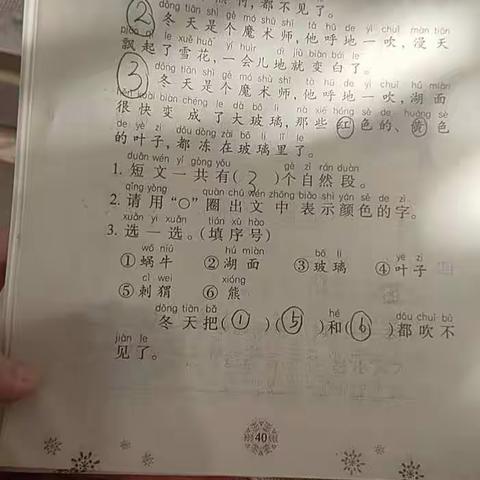 都不见了。
② dōng tiān shì gè mó shù shī tā hū de yì chuī màn tiān
冬天是个魔术师,他呼地一吹,漫天
飘起了雪花,一会儿地就变白了。
③ dōng tiān shì gè mó shù shī tā hū de yì chuī hú miàn
冬天是个魔术师,他呼地一吹,湖面
很快变成了大玻璃,那些红色的、黄色
的叶子,都冻在玻璃里了。
duǎn wén yí gòng yǒu gè zì rán duàn
1. 短文一共有(2)个自然段。
qǐng yòng quān chū wén zhōng biǎo shì yán sè de zì
2. 请用“○”圈出文中表示颜色的字。
xuǎn yi xuǎn tián xù hào
3. 选一选。(填序号)
wō niú hú miàn bō li yè zi
①蜗牛 ②湖面 ③玻璃 ④叶子
cì wei xióng
⑤刺猬 ⑥熊
dōng tiān bǎ hé dōu chuī bú
冬天把(①)(⑤)和(⑥)都吹不
jiàn le
见了。
40